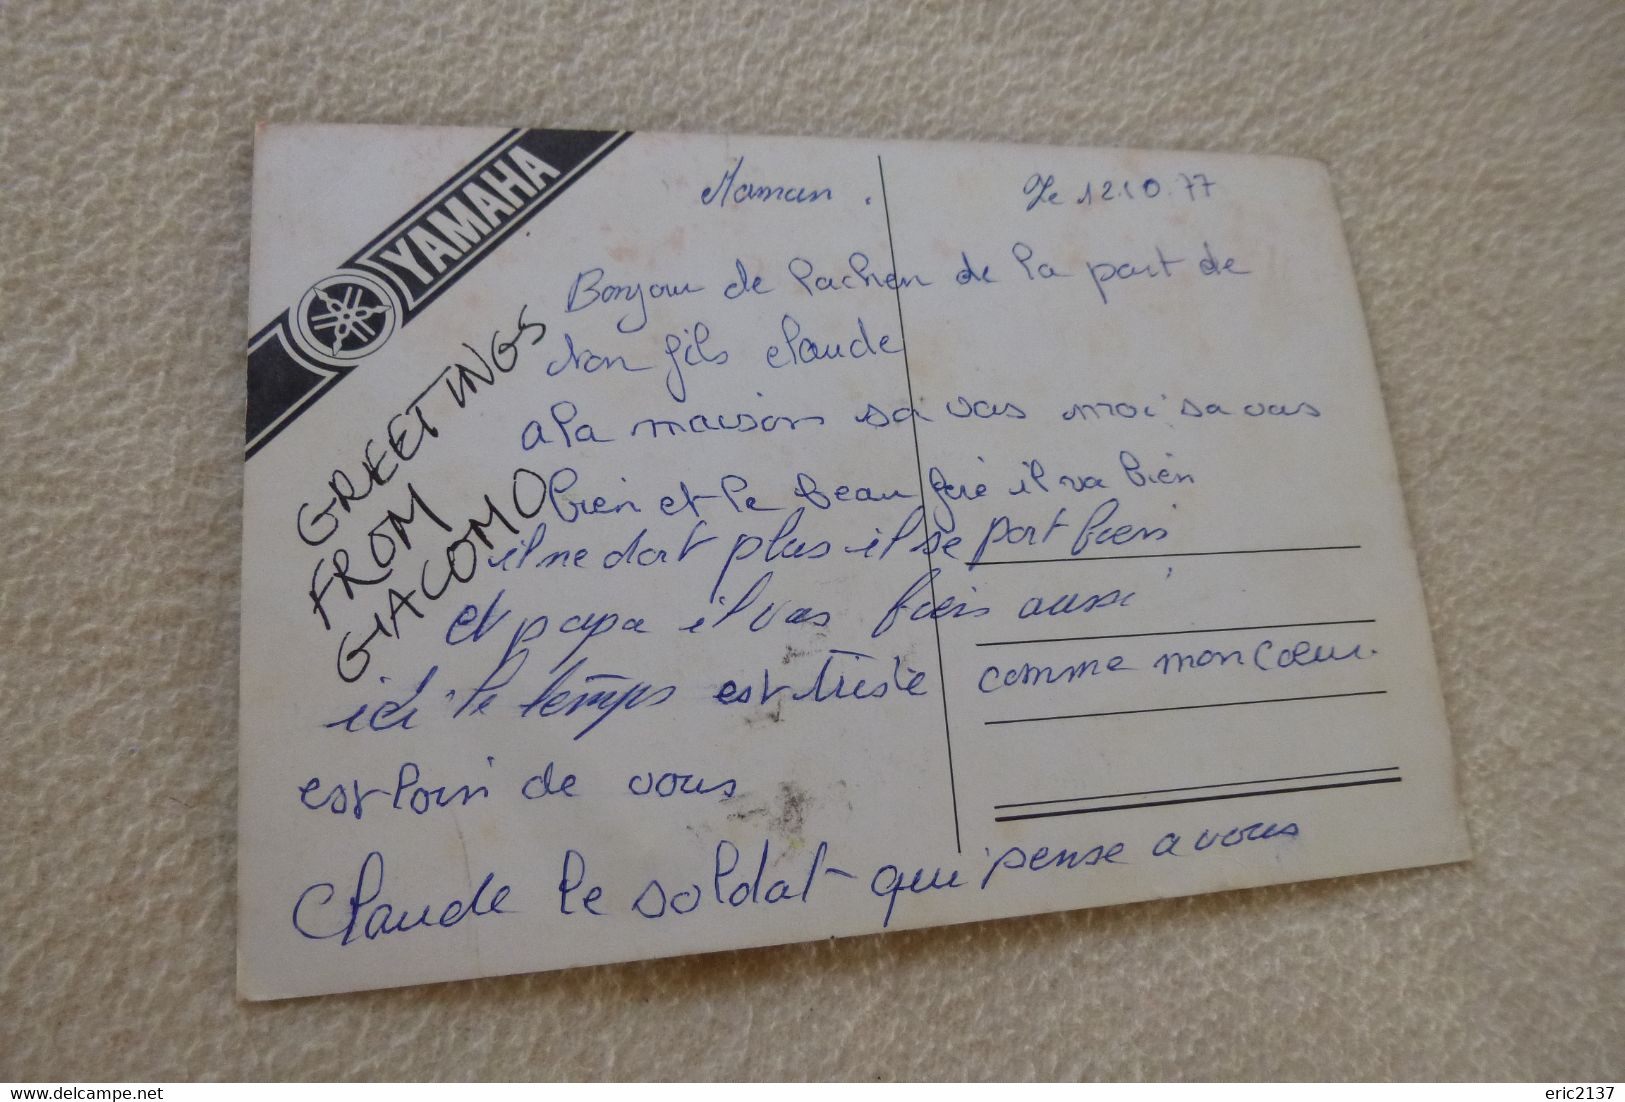 YAMAHA
GREETINGS
FROM
GIACOMO
Maman.
Le 12.10.77
Bonjour de lachen de la part de
ton fils claude
a la maison sa vas moi sa vas
bien et le beau frere il va bien
il ne dort plus il se port bien
et papa il vas bien aussi
ici le temps est triste comme mon Cœur.
est loin de vous
Claude le soldat qui pense a vous
www.delcampe.net
eric2137